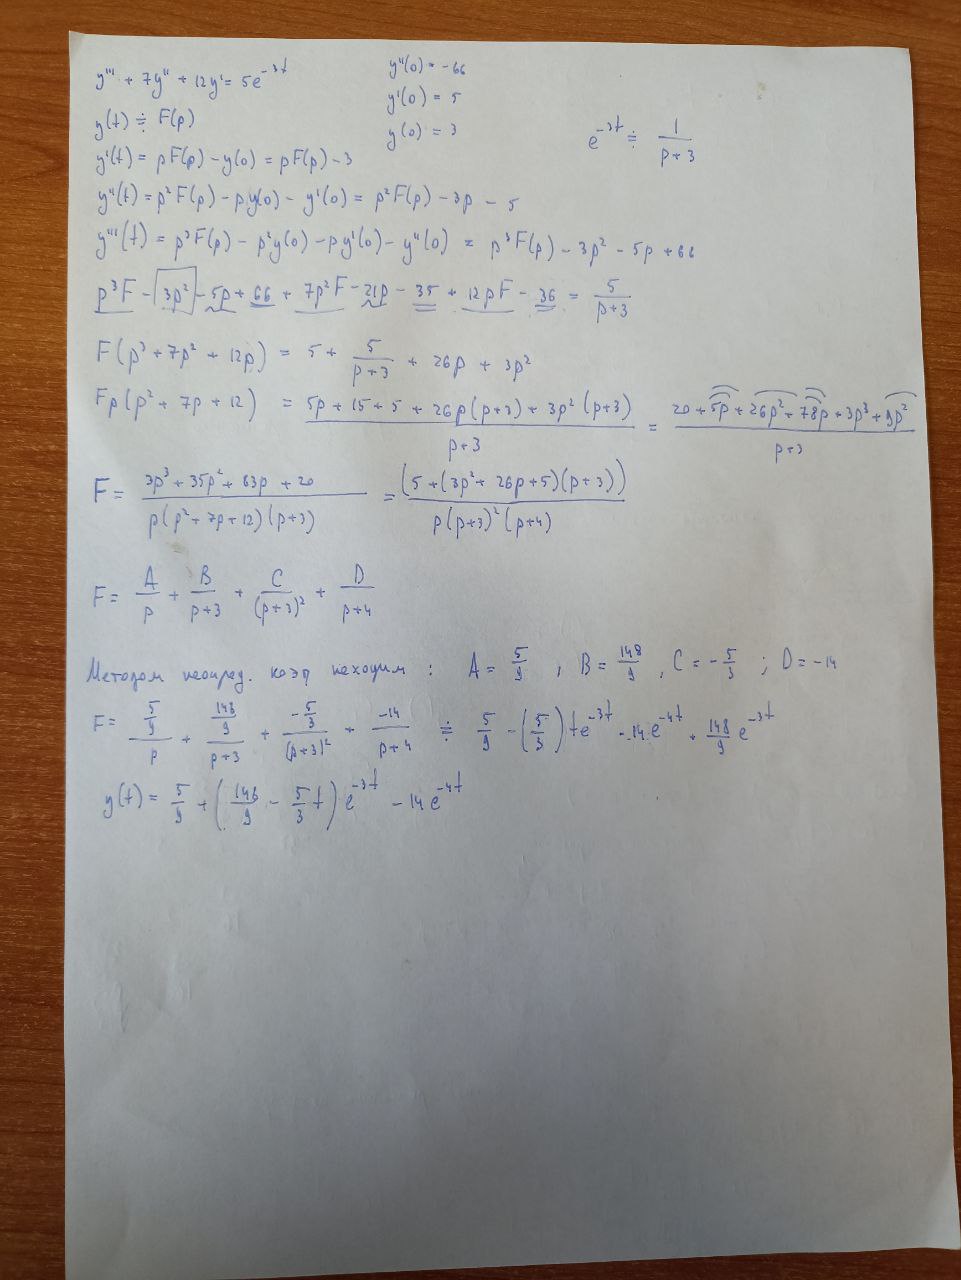 y''' + 7y'' + 12y' = 5e^{-3t}    y''(0) = -66
y(t) ≑ F(p)    y'(0) = 5
y(0) = 3    e^{-3t} ≑ 1/(p+3)
y'(t) = pF(p) - y(0) = pF(p) - 3
y''(t) = p²F(p) - py(0) - y'(0) = p²F(p) - 3p - 5
y'''(t) = p³F(p) - p²y(0) - py'(0) - y''(0) = p³F(p) - 3p² - 5p + 66
p³F - 3p² - 5p + 66 + 7p²F - 21p - 35 + 12pF - 36 = 5/(p+3)
F(p³ + 7p² + 12p) = 5 + 5/(p+3) + 26p + 3p²
Fp(p² + 7p + 12) = (5p + 15 + 5 + 26p(p+3) + 3p²(p+3))/(p+3) = (20 + 5p + 26p² + 78p + 3p³ + 9p²)/(p+3)
F = (3p³ + 35p² + 83p + 20)/(p(p² + 7p + 12)(p+3)) = (5 + (3p² + 26p + 5)(p+3))/(p(p+3)²(p+4))
F = A/p + B/(p+3) + C/(p+3)² + D/(p+4)
Методом неопред. коэф находим : A = 5/9 , B = 148/9 , C = -5/3 ; D = -14
F = (5/9)/p + (148/9)/(p+3) + (-5/3)/(p+3)² + -14/(p+4) ≑ 5/9 - (5/3)te^{-3t} - 14e^{-4t} + 148/9 e^{-3t}
y(t) = 5/9 + (148/9 - 5/3 t) e^{-3t} - 14e^{-4t}